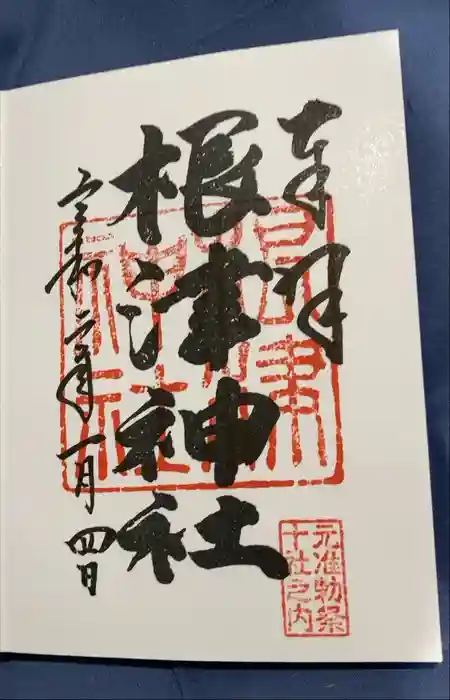 奉拝
根津神社
令和六年一月四日
根津神社
元准勅祭
十社之内